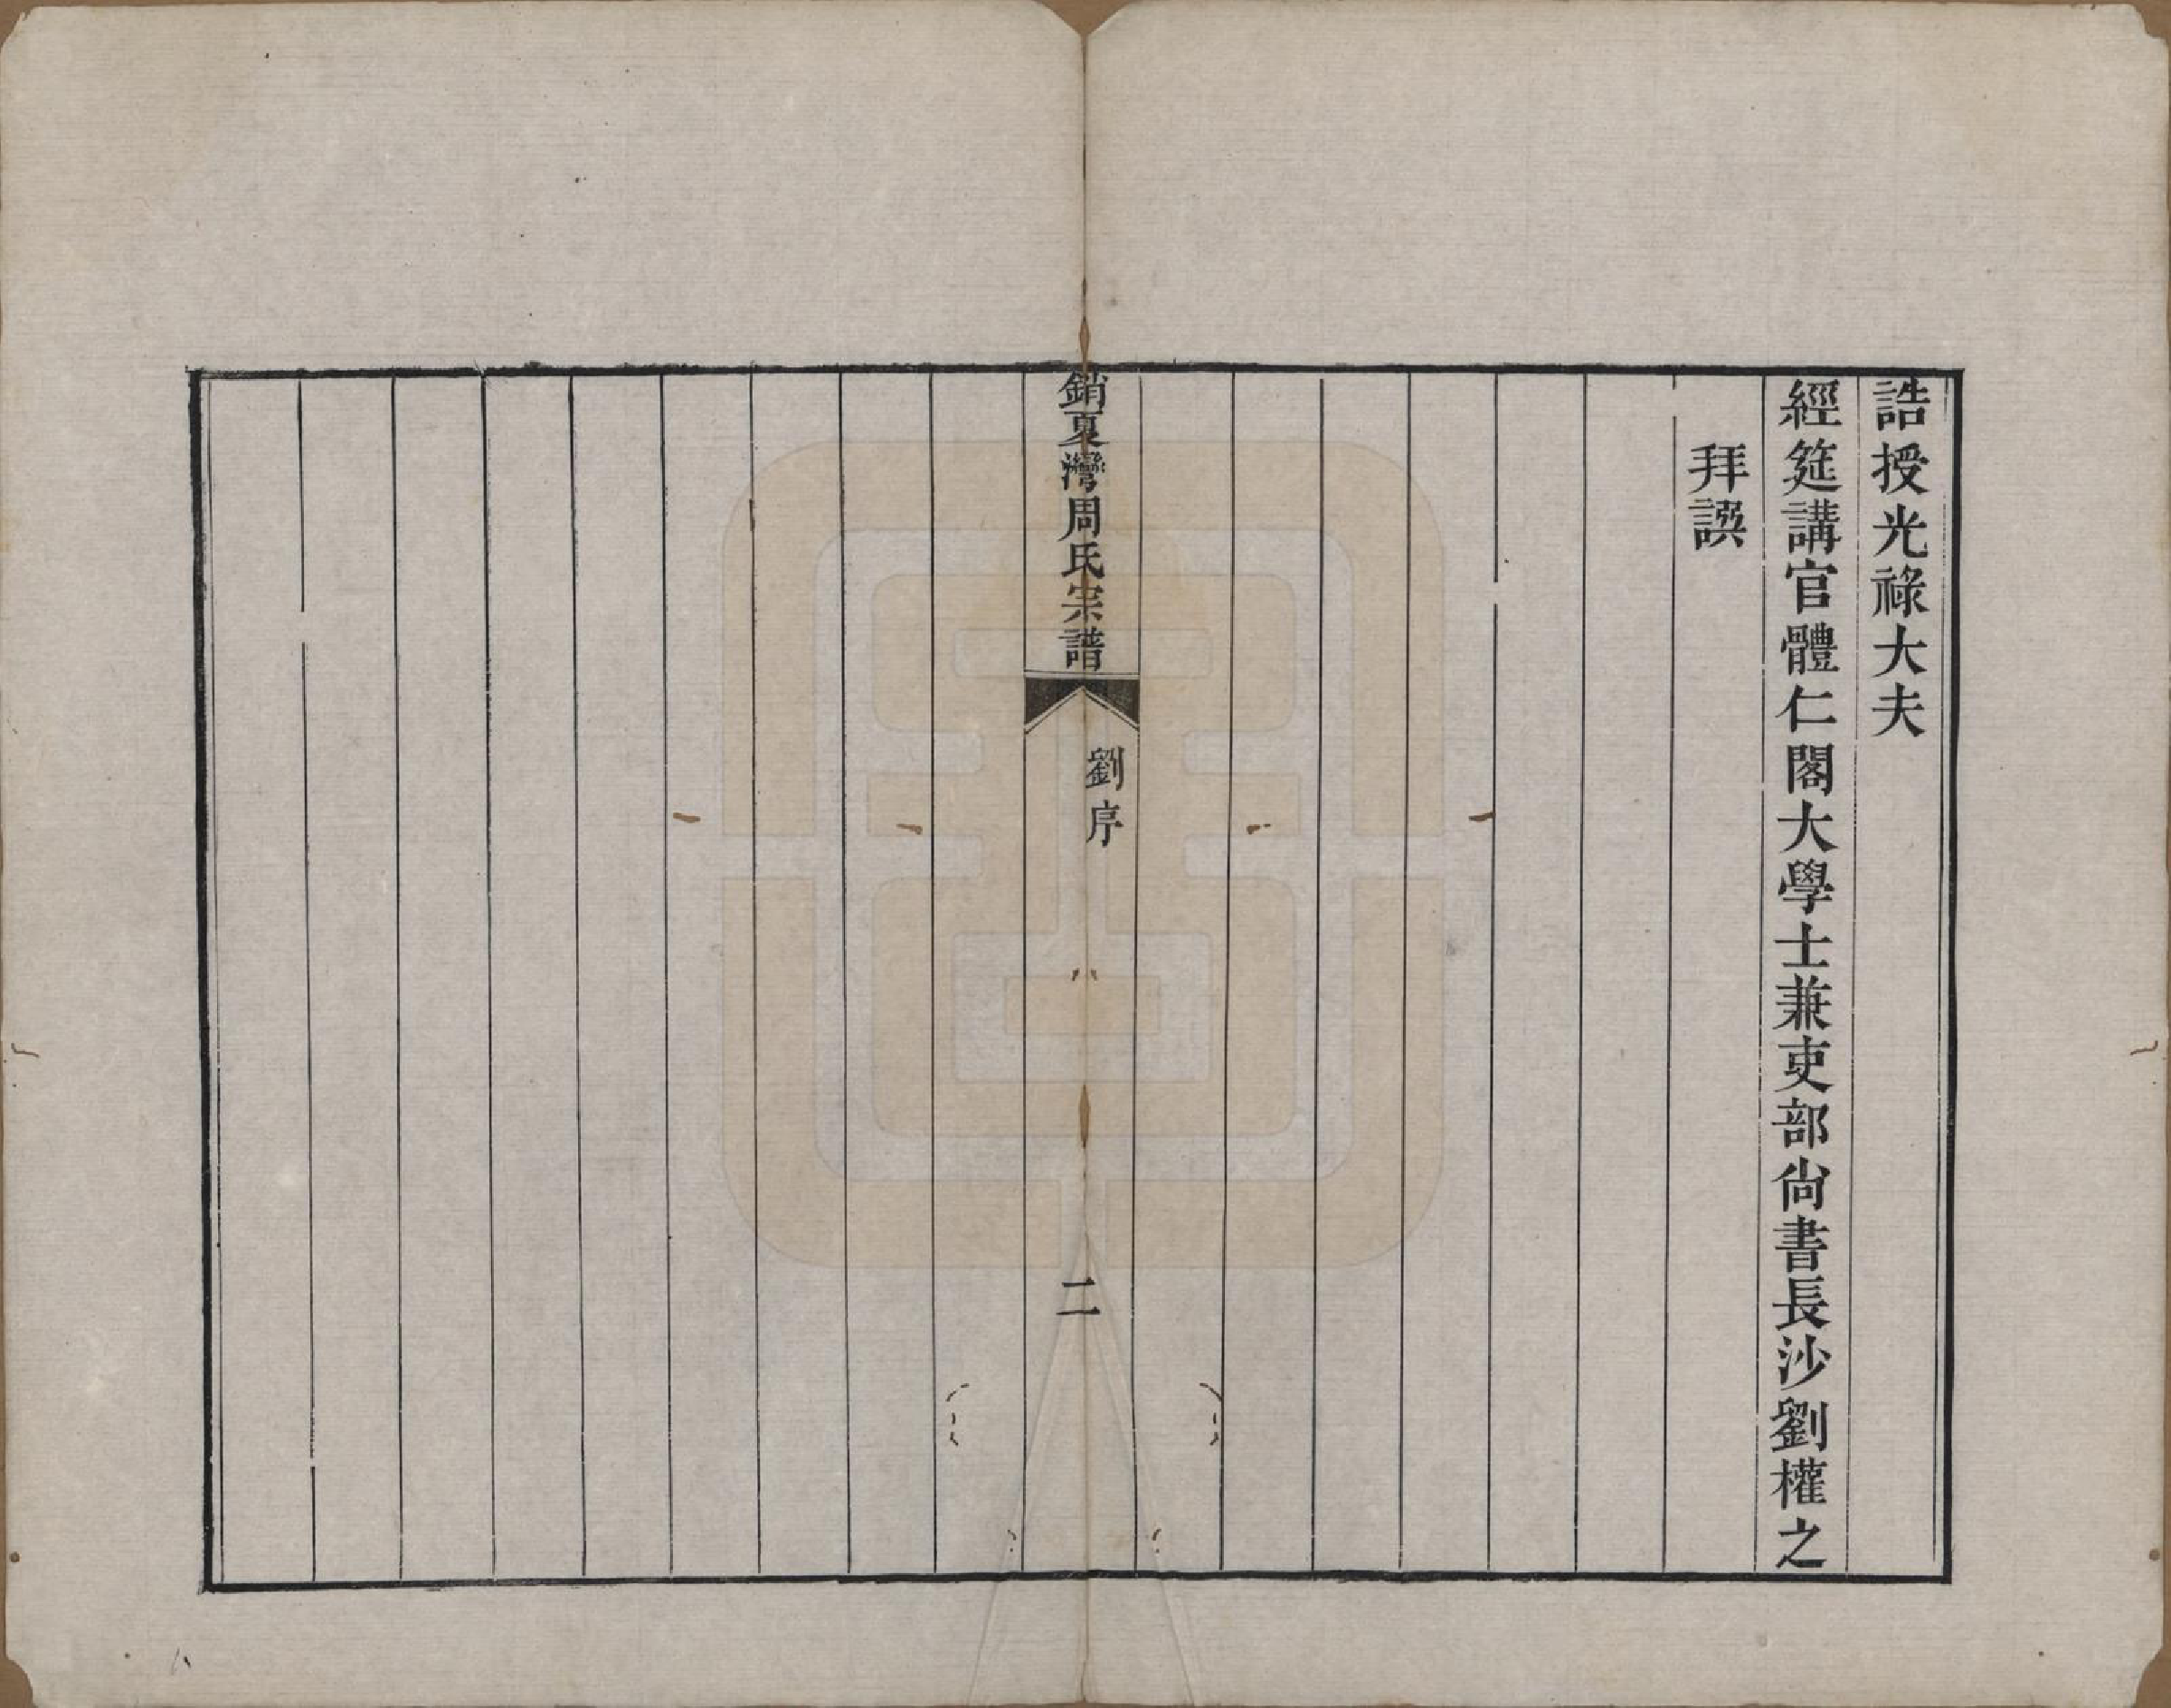 誥授光祿大夫
經筵講官體仁閣大學士兼吏部尙書長沙劉權之
拜譔
銷夏灣周氏宗譜
劉序
二